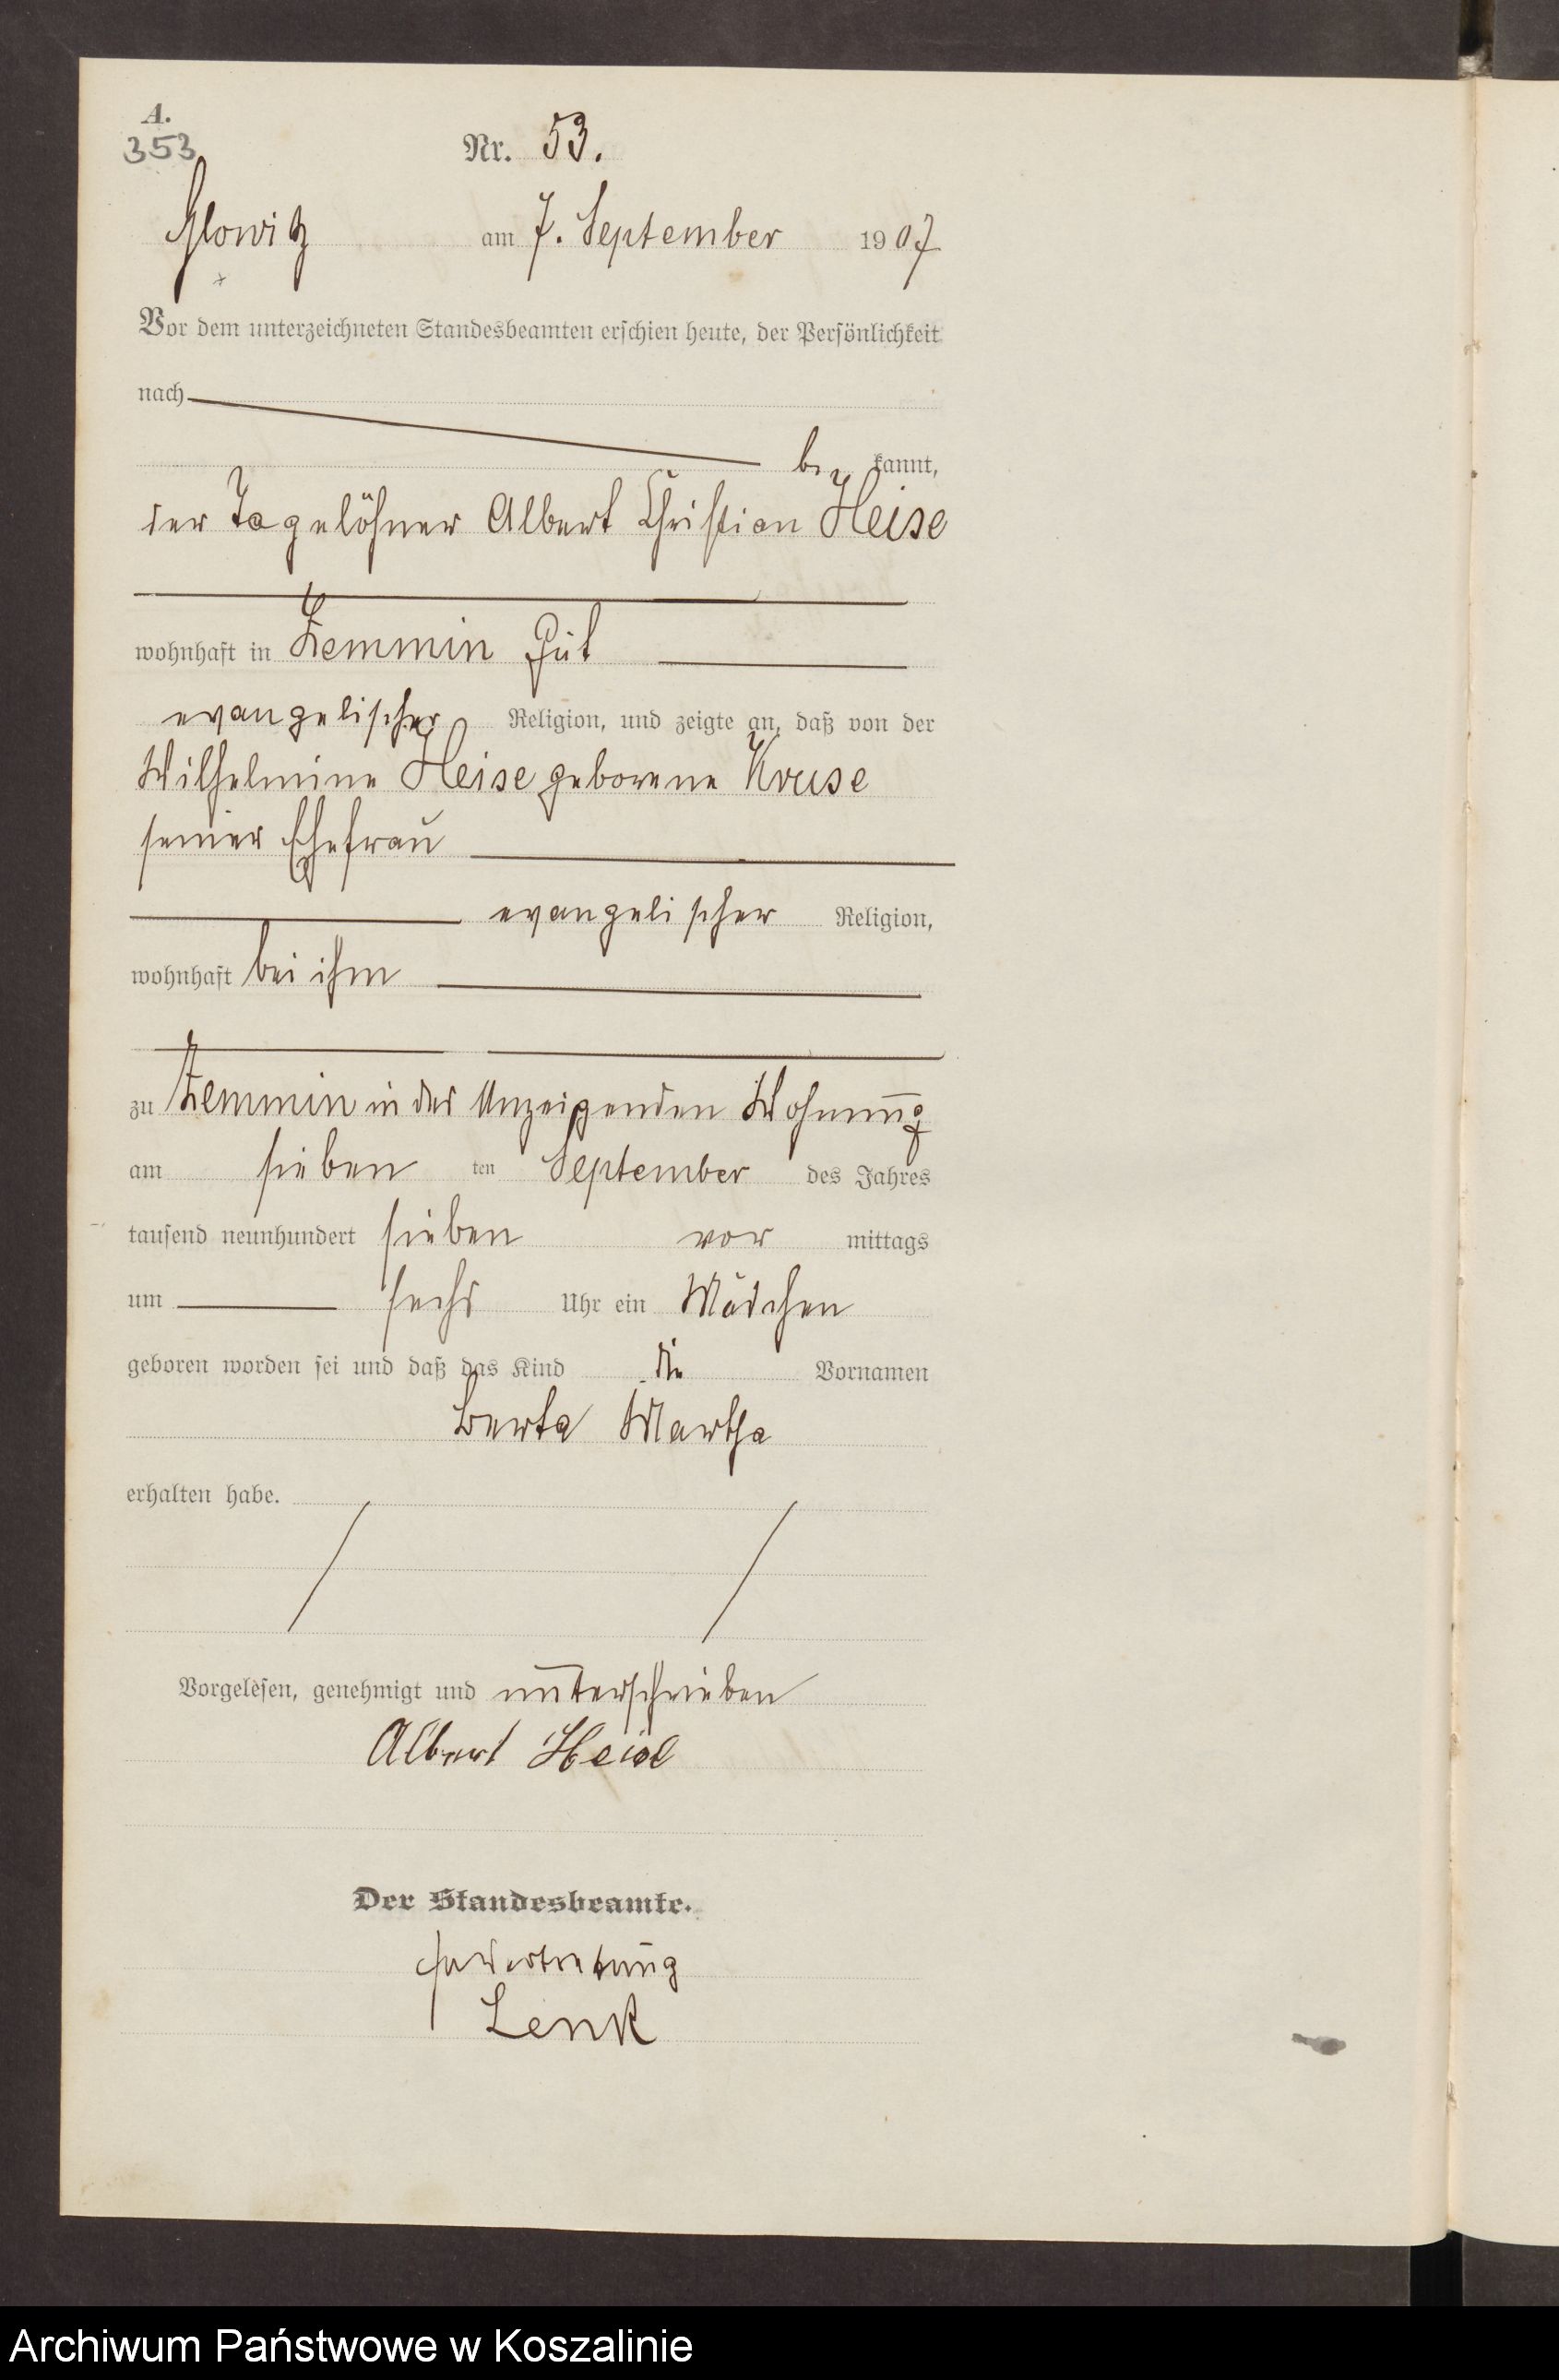 A.
353
Nr. 53.
Glowitz am 7. September 1907
Vor dem unterzeichneten Standesbeamten erschien heute, der Persönlichkeit
nach
be kannt,
der Tagelöhner Albert Christian Heise
wohnhaft in Zemmin Gut
evangelischer Religion, und zeigte an, daß von der
Wilhelmine Heise geborene Kruse
seiner Ehefrau
evangelischer Religion,
wohnhaft bei ihm
zu Zemmin in des Anzeigenden Wohnung
am sieben ten September des Jahres
tausend neunhundert sieben vor mittags
um sechs Uhr ein Mädchen
geboren worden sei und daß das Kind die Vornamen
Berta Martha
erhalten habe.
Vorgelesen, genehmigt und unterschrieben
Albert Heise
Der Standesbeamte.
In Vertretung
Lenk
Archiwum Państwowe w Koszalinie